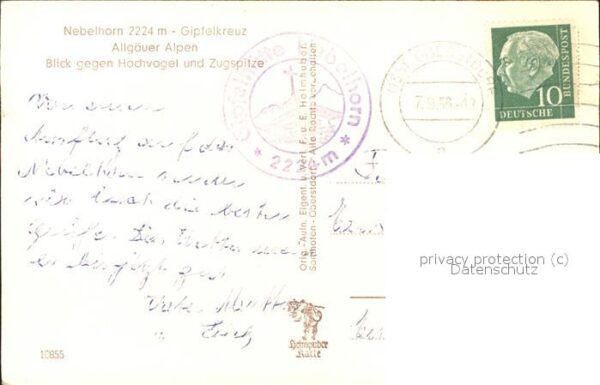 Nebelhorn 2224 m - Gipfelkreuz
Allgäuer Alpen
Blick gegen Hochvogel und Zugspitze
Gipfelhütte Nebelhorn
* 2224 m *
7.9.58
10
DEUTSCHE
BUNDESPOST
Von einem
Ausflug auf das
Nebelhorn senden
wir Euch die besten
Grüße. Das Wetter
ist bis jetzt gut
Vater, Mutter
u.
Orig.-Aufn. Eigent. u. Verl. F. u. E. Heimhuber
Sonthofen - Oberstdorf - Alle Rechte vorbehalten
Heimhuber
Karte
10855
privacy protection (c)
Datenschutz